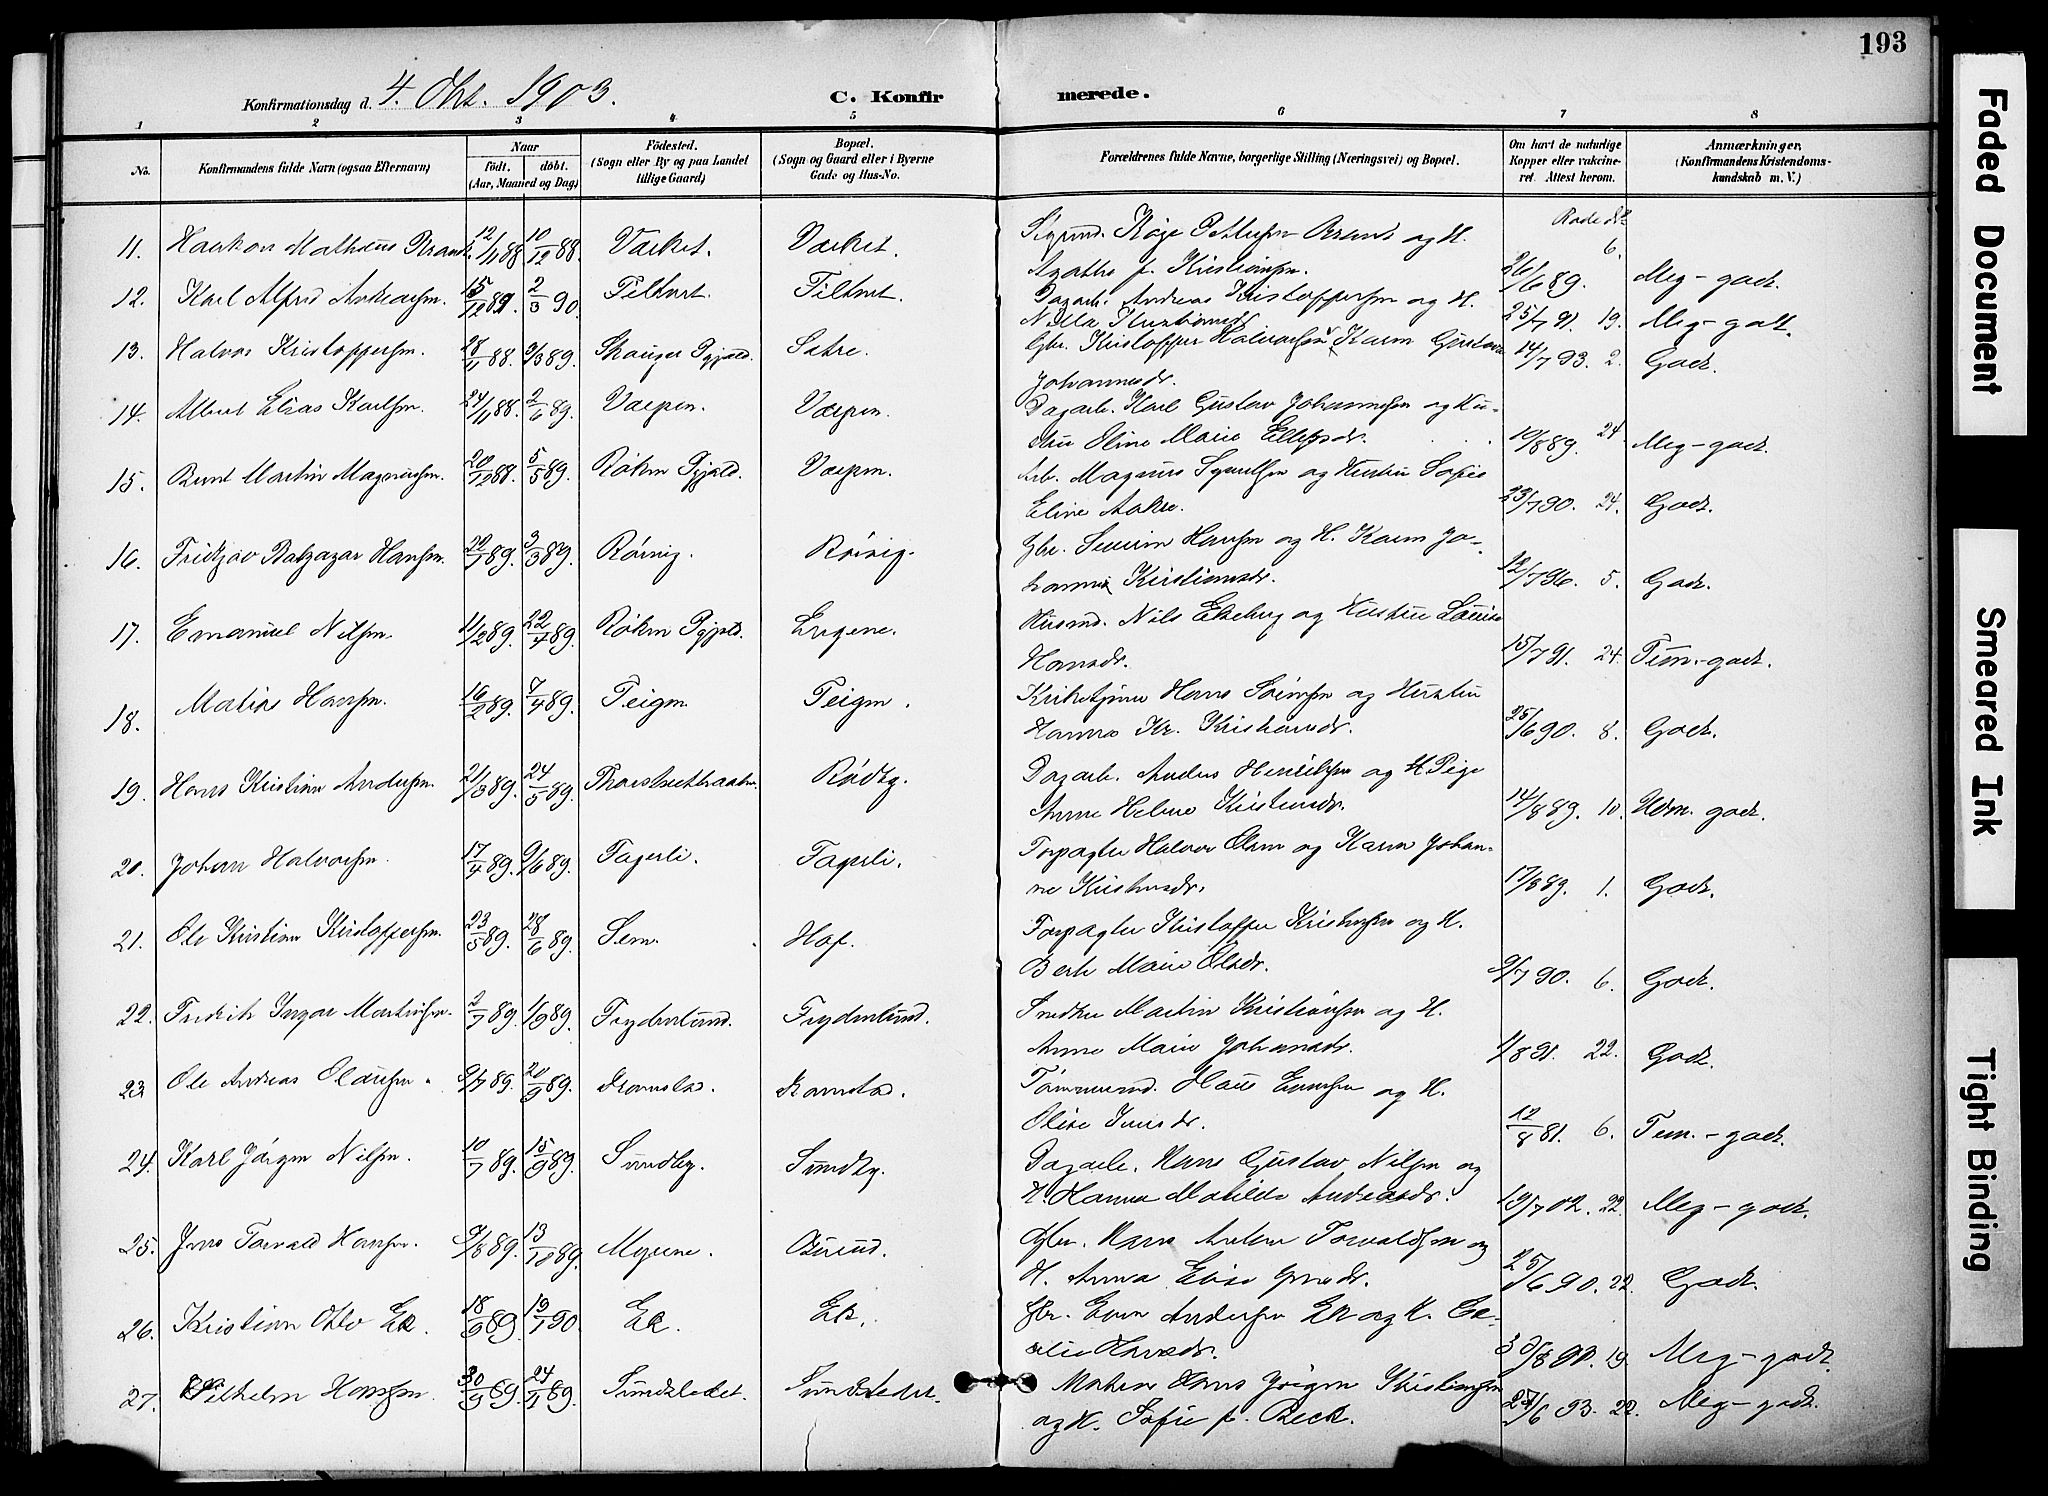 193
Konfirmationsdag d. 4. Okt. 1903.
C. Konfirmerede.
1 2 3 4 5 6 7 8
No.
Konfirmandens fulde Navn (ogsaa Efternavn)
Naar
födt. döbt.
(Aar, Maaned og Dag)
Födested.
(Sogn eller By og paa Landet
tillige Gaard)
Bopæl.
(Sogn og Gaard eller i Byerne
Gade og Hus-No.
Forældrenes fulde Navne, borgerlige Stilling (Næringsvei) og Bopæl.
Om havt de naturlige
Kopper eller vaccine-
ret. Attest herom.
Anmærkninger.
(Konfirmandens Kristendoms-
kundskab m. V.)
11. Haakon Mathæus Brandt. 12/11 88 10/12 88. Værket. Værket. og H.
Agathe f. Kristiansen. 26/6 89. 6. Meg-godt.
12. Karl Alfred Andreassen. 15/12 89. 2/3 90. Tiltvet. Tiltvet. Dagarb. Andreas Kristoffersen og H.
25/7 91. 19. Meg-godt.
13. Halvor Kristoffersen. 28/11 88. 3/3 89. Sætre. Gbr. Kristoffer Halvorsen Karen Gustava
Johannesdr. 14/7 93. 2. Godt.
14. Albert Elias Karlsen. 24/11 88. 2/6 89. Værpen. Værpen. Dagarb. Karl Gustav Johannessen og Hu-
stru Oline Marie Ellefsdr. 19/8 89. 24. Meg-godt.
15. Bernt Martin Magnussen. 20/12 88. 5/5 89. Røken Pgjæld. Værpen. Arb. Magnus Syvertsen og Hustru Sofie
Eline Aakre. 23/7 90. 24. Godt.
16. Fridtjov Baltzazar Hansen. 20/1 89. 3/3 89. Rørvig. Rørvig. Gbr. Severin Hansen og H. Karen Jo-
hanne Kristiansdr. 12/7 96. 5. Godt.
17. Emanuel Nilsen. 11/2 89. 22/4 89. Røken Pgjæld. Engene. Husmd. Nils Ekeberg og Hustru Louise
Hansdr. 15/7 91. 24. Tem.-godt.
18. Martin Hansen. 16/2 89. 7/4 89. Teigen. Teigen. Kirketjener Hans og Hustru
Hanna Kr. Kristiansdr. 25/6 90. 8. Godt.
19. Hans Kristian Andersen. 21/3 89. 24/5 89. Rødby. Dagarb. Anders Henriksen og Pige
Anne Helene Kristensdr. 14/8 89. 10. Udm. godt.
20. Johan Halvorsen. 17/4 89. 9/6 89. Fagerli. Fagerli. Forpagter Halvor Olsen og Karen Johan-
ne Kristensdr. 17/8 89. 1. Godt.
21. Ole Kristian Kristoffersen. 23/5 89. 28/6 89. Sem. Hof. Forpagter Kristoffer Kristensen og H.
Berte Marie Olsdr. 9/7 90. 6. Godt.
22. Fredrik Ingvar Martinsen. 2/7 89. 1/9 89. Frydenlund. Frydenlund. Snedker Martin Kristiansen og H.
Anne Marie Johansdr. 1/8 91. 22. Godt.
23. Ole Andreas Olausen. 9/7 89. 20/9 89. Kornstad. Kornstad. Tømmermd. Evensen og H.
Olise Jensdr. 12/8 81. 6. Tem.-godt.
24. Karl Jørgen Nilsen. 10/7 89. 15/9 89. Sundby. Sundby. Dagarb. Hans Gustav Nilsen og
H. Hanna Matilde Andreasdr. 19/7 02. 22. Meg-godt.
25. Jens Torvald Hansen. 9/8 89. 13/10 89. Myrene. Hans Anton Torvaldsen og
H. Anna Elise Jensdr. 25/6 90. 22. Godt.
26. Kristian Otto Ek. 18/9 89. 19/1 90. Ek. Ek. Gbr. Even Andersen Ek og H. Ce-
cilie Hansdr. 30/8 90. 19. Meg-godt.
27. Vilhelm Hansen. 30/9 89. Sundsledet. Sundsledet. Matros Hans Jørgen Kristiansen
og H. Sofie f. Beck. 27/6 93. 22. Meg-godt.
Faded Document
Smeared Ink
Tight Binding